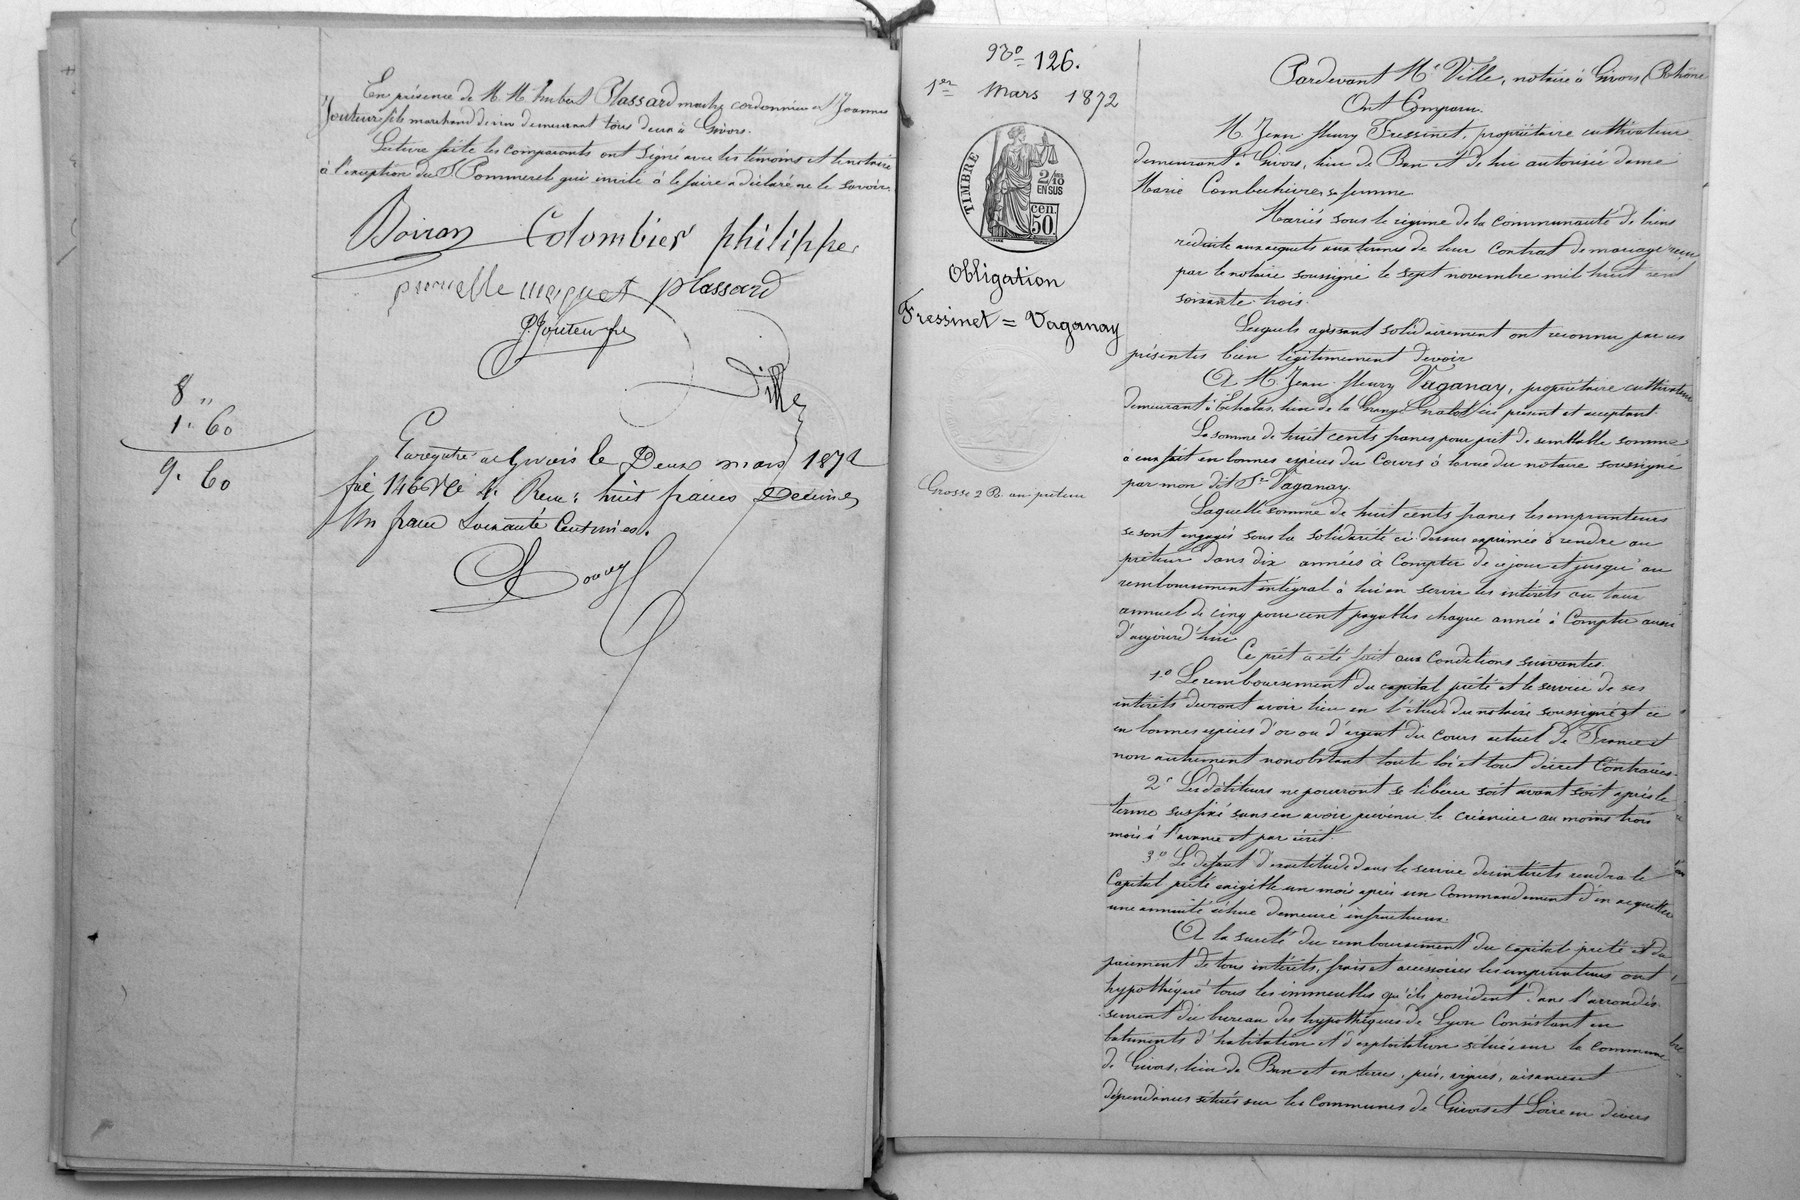 En présence de M. M. Imbert Plassard cordonnier et Joannes
Jouteur fils marchand de vin demeurant tous deux à Givors.
Lecture faite les comparants ont signé avec les témoins et le notaire
à l'exception du S Pommerel qui invité à le faire a déclaré ne le savoir.
Boiron Colombier philippe
prunelle plassard
P. Jouteur fils
Ville
8 "
1. 60
9. 60
Enregistré à Givors le Deux mars 1872
fol 146 Vo C 4. Reçu: huit francs Décimes
Un franc soixante Centimes.
No 126.
1er Mars 1872
TIMBRE
2/10
EN SUS
cen.
50
Obligation
Fressinet = Vaganay
Grosse 2 R. au prêteur
Pardevant Me Ville, notaire à Givors (Rhône
Ont Comparu.
M. Jean fleury Fressinet, propriétaire cultivateur
demeurant à Givors, lieu de Ban et de lui autorisée dame
Marie Combechière sa femme
Mariés sous le régime de la communauté de biens
réduite aux acquets aux termes de leur Contrat de mariage reçu
par le notaire soussigné le sept novembre mil huit cent
soixante trois.
Lesquels agissant solidairement ont reconnu par ces
présentes bien légitimement devoir
A M. Jean fleury Vaganay, propriétaire cultivateur
demeurant à Echalas, lieu de la Grange ici présent et acceptant
La somme de huit cents francs pour prêt de semblable somme
à eux fait en bonnes espèces du Cours à la vue du notaire soussigné
par mon dit Sr Vaganay.
Laquelle somme de huit cents francs les emprunteurs
se sont engagés sous la solidarité ci-dessus exprimée à rendre au
prêteur dans dix années à Compter de ce jour et jusqu'au
remboursement intégral à lui en servir les intérêts au taux
annuel de cinq pour cent payables chaque année à Compter aussi
d'aujourd'hui
Ce prêt a été fait aux Conditions suivantes.
1o Le remboursement du capital prêté et le service de ses
intérêts devront avoir lieu en l'étude du notaire soussigné et ce
en bonnes espèces d'or ou d'argent du cours actuel de France et
non autrement nonobstant toute loi et tout décret Contraires.
2o Les débiteurs ne pourront se libérer soit avant soit après le
terme susfixé sans en avoir prévenu le créancier au moins trois
mois à l'avance et par écrit
3o Le défaut d'exactitude dans le service des intérêts rendra le
Capital prêté exigible un mois après un Commandement d'en acquitter
une annuité échue demeuré infructueux.
A la sureté du remboursement du capital prêté et du
paiement de tous intérêts, frais et accessoires les emprunteurs ont
hypothéqué tous les immeubles qu'ils possèdent dans l'arrondis
sement du bureau des hypothèques de Lyon Consistant en
batiments d'habitation et d'exploitation situés sur la commune
de Givors, lieu de Ban et en terres, prés, vignes, aisances et
dépendances situés sur les Communes de Givors et Loire en divers